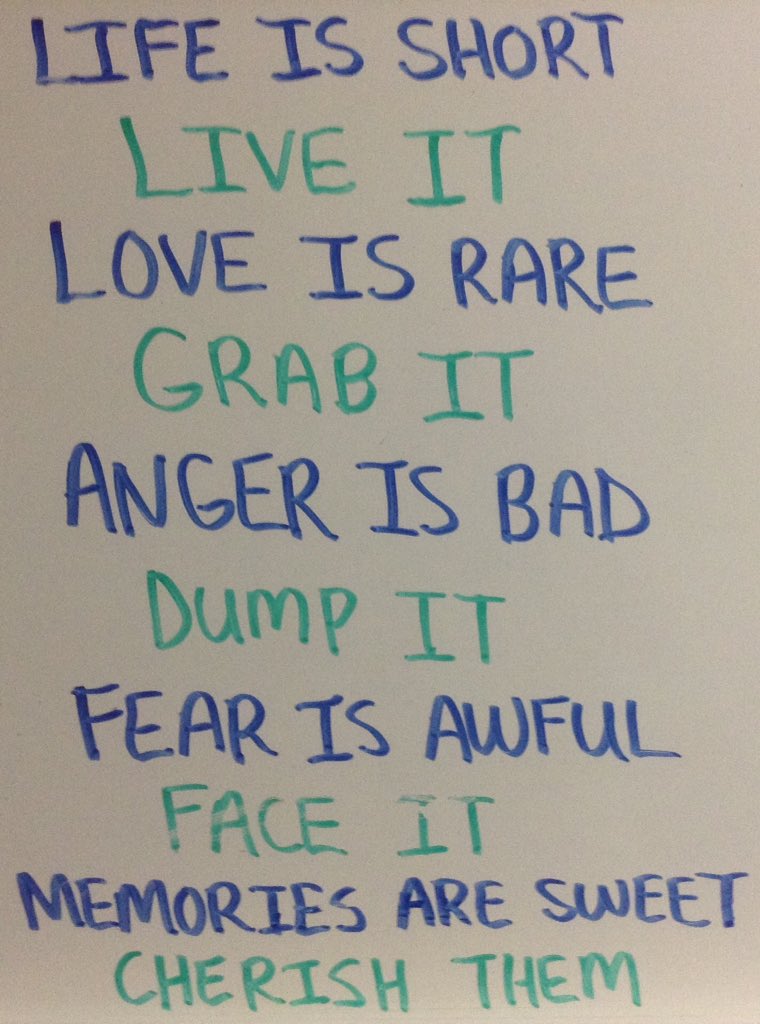 LIFE IS SHORT
LIVE IT
LOVE IS RARE
GRAB IT
ANGER IS BAD
DUMP IT
FEAR IS AWFUL
FACE IT
MEMORIES ARE SWEET
CHERISH THEM